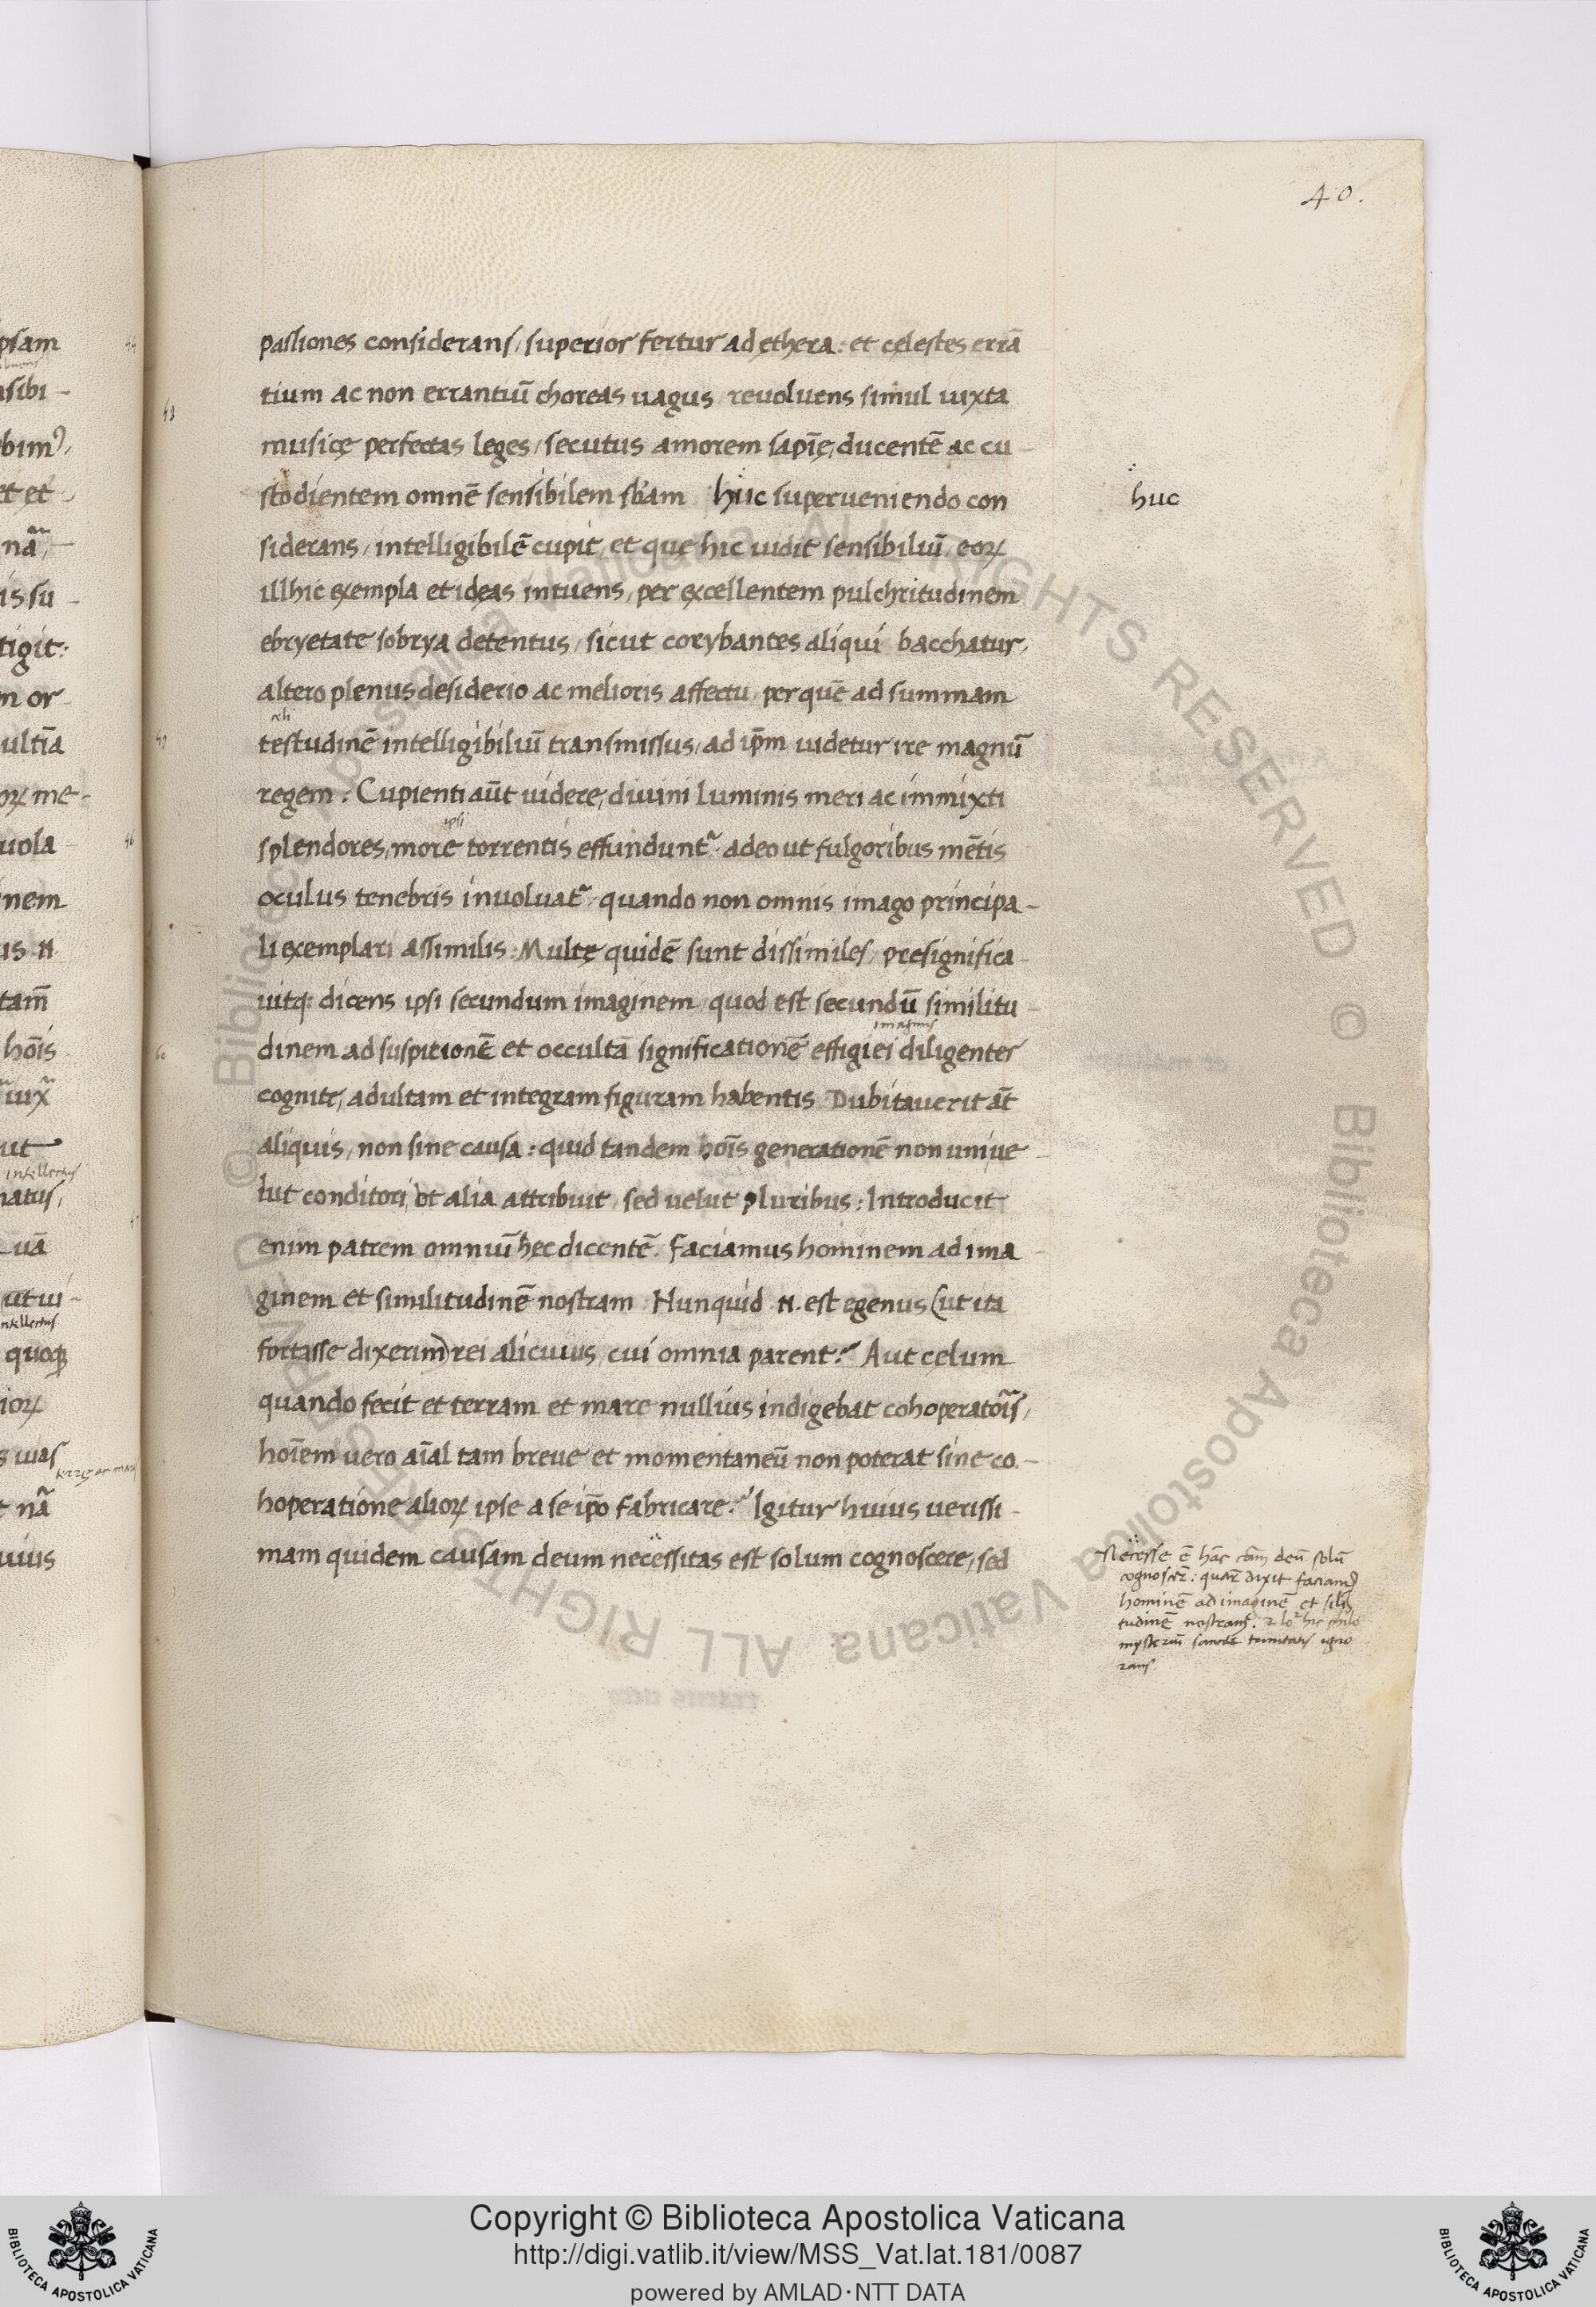 40.
passiones considerans, superior fertur ad ęthera: et cęlestes errā
tium ac non errantiū choreas uagus, reuoluens simul iuxta
musicę perfectas leges, secutus amorem sapīę, ducentē ac cu
stodientem omnē sensibilem sb̄am Huc superueniendo con
huc
siderans, intelligibilē cupit, et quę hic uidit sensibiliū, eoꝝ
illhic exempla et idęas intuens, per excellentem pulchritudinem
ebryetate sobrya detentus, sicut corybantes aliqui bacchatur,
altero plenus desiderio ac melioris affectu, per quē ad summam
testudinē intelligibiliū transmissus, ad ip̄m uidetur ire magnū
regem: Cupienti aūt uidere, diuini luminis meri ac immixti
ipsi
splendores, more torrentis effundunt᷑: adeo ut fulgoribus mētis
oculus tenebris inuoluat᷑: quando non omnis imago principa-
li exemplari assimilis: Multę quidē sunt dissimiles, presignifica-
uitq; dicens ipsi secundum imaginem, quod est secundū similitu-
imaginis
dinem ad suspitionē et occultā significationē effigiei diligenter
cognitę, adultam et integram figuram habentis Dubitauerit āt
aliquis, non sine causa: quid tandem hoīs generationē non uni, ue
lut conditori, ut alia attribuit, sed uelut pluribus: Introducit
enim patrem omniū hęc dicentē. Faciamus hominem ad ima
ginem et similitudinē nostram Nunquid .n. est egenus (ut ita
fortasse dixerim) rei alicuius, cui omnia parent? Aut cęlum
quando fecit et terram et mare nullius indigebat cohoperatoīs,
hoīem uero aīal tam breue et momentaneū non poterat sine co-
hoperatione alioꝝ ipse a se ip̄o fabricare? Igitur huius uerissi-
mam quidem causam deum necessitas est solum cognoscere, sed
Necesse ē hāc cām deū solū
cognoscer̄: quar̄ dixit faciam9
hominē ad imaginē et sili
tudinē nostram:
mysteriū sanctę trinitatis igno
rans